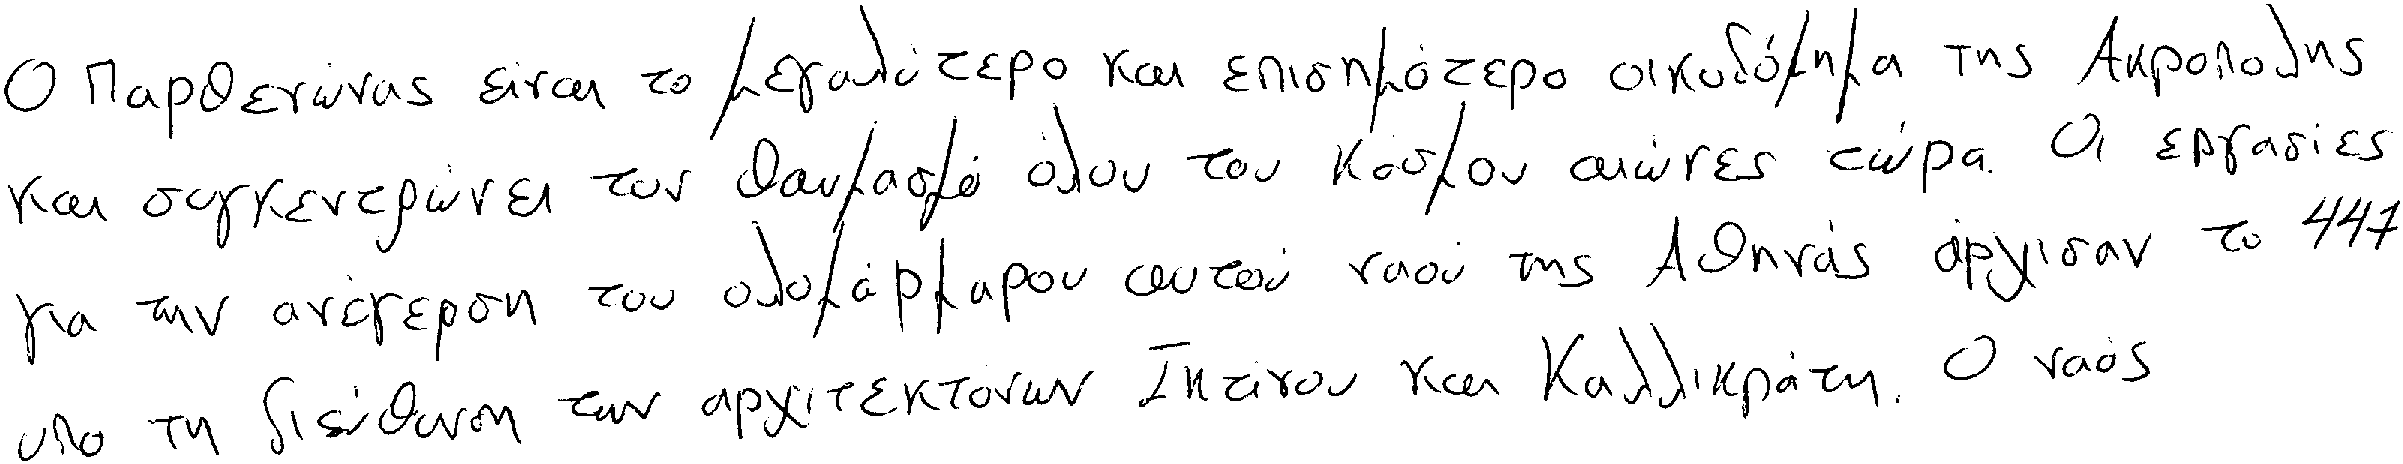 Ο Παρθενώνας είναι το μεγαλύτερο και επισημότερο οικοδόμημα της Ακροπολης
και συγκεντρώνει τον θαυμασμό όλου του κόσμου αιώνες τώρα. Οι εργασίες
για την ανέγερση του ολομάρμαρου αυτού ναού της Αθηνάς άρχισαν το 447
υπο τη διεύθυνση των αρχιτεκτόνων Ικτίνου και Καλλικράτη. Ο ναός